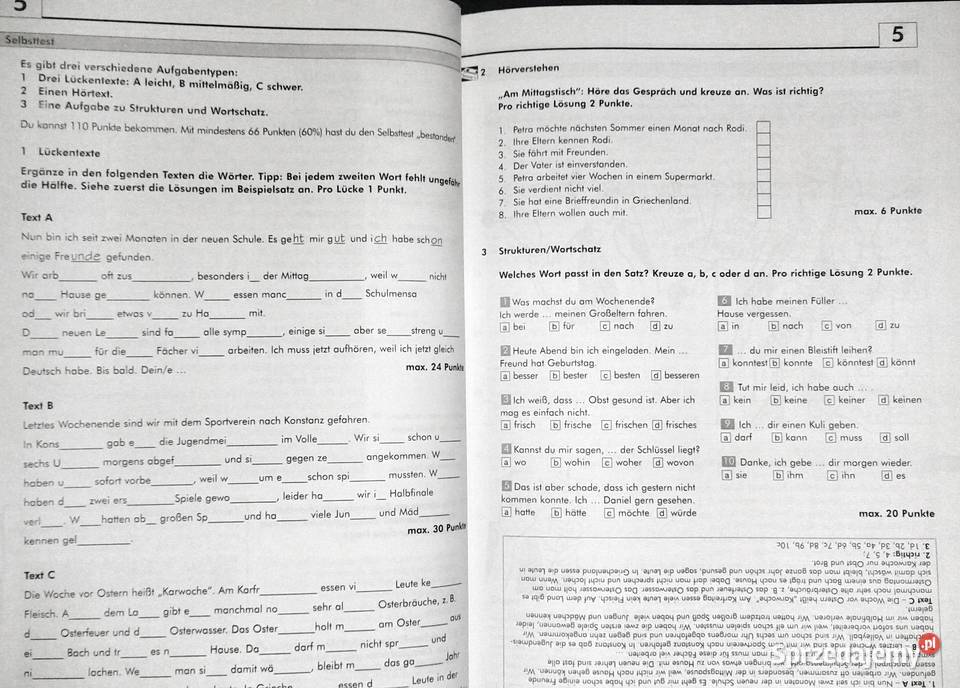 5
Selbsttest
Es gibt drei verschiedene Aufgabentypen:
1 Drei Lückentexte: A leicht, B mittelmäßig, C schwer.
2 Einen Hörtext.
3 Eine Aufgabe zu Strukturen und Wortschatz.
Du kannst 110 Punkte bekommen. Mit mindestens 66 Punkten (60%) hast du den Selbsttest „bestanden“
1 Lückentexte
Ergänze in den folgenden Texten die Wörter. Tipp: Bei jedem zweiten Wort fehlt ungefähr
die Hälfte. Siehe zuerst die Lösungen im Beispielsatz an. Pro Lücke 1 Punkt.
Text A
Nun bin ich seit zwei Monaten in der neuen Schule. Es geht mir gut und ich habe schon
einige Freunde gefunden.
Wir arb____ oft zus____, besonders i__ der Mittag____, weil w____ nicht
na____ Hause ge____ können. W____ essen manc____ in d____ Schulmensa
od____ wir bri____ etwas v____ zu Ha____ mit.
D____ neuen Le____ sind fa____ alle symp____, einige si____ aber se____ streng u____
man mu____ für die____ Fächer vi____ arbeiten. Ich muss jetzt aufhören, weil ich jetzt gleich
Deutsch habe. Bis bald. Dein/e ...
max. 24 Punkte
Text B
Letztes Wochenende sind wir mit dem Sportverein nach Konstanz gefahren.
In Kons____ gab e____ die Jugendmei____ im Volle____. Wir si____ schon u____
sechs U____ morgens abgef____ und si____ gegen ze____ angekommen. W____
haben u____ sofort vorbe____, weil w____ um e____ schon spi____ mussten. W____
haben d____ zwei ers____ Spiele gewo____, leider ha____ wir i__ Halbfinale
verl____. W____ hatten ab__ großen Sp____ und ha____ viele Jun____ und Mäd____
kennen gel____.
max. 30 Punkte
Text C
Die Woche vor Ostern heißt „Karwoche“. Am Karfr____ essen vi____ Leute ke____
Fleisch. A____ dem La____ gibt e____ manchmal no____ sehr al____ Osterbräuche, z.B.
d____ Osterfeuer und d____ Osterwasser. Das Oster____ holt m____ am Oster____ aus
ei____ Bach und tr____ es n____ Hause. Da____ darf m____ nicht spr____ und
ni____ lachen. We____ man si____ damit wä____, bleibt m____ das ga____ Jahr
essen d____ Leute in der
5
2 Hörverstehen
„Am Mittagstisch“: Höre das Gespräch und kreuze an. Was ist richtig?
Pro richtige Lösung 2 Punkte.
1. Petra möchte nächsten Sommer einen Monat nach Rodi.
2. Ihre Eltern kennen Rodi.
3. Sie fährt mit Freunden.
4. Der Vater ist einverstanden.
5. Petra arbeitet vier Wochen in einem Supermarkt.
6. Sie verdient nicht viel.
7. Sie hat eine Brieffreundin in Griechenland.
8. Ihre Eltern wollen auch mit.
max. 6 Punkte
3 Strukturen/Wortschatz
Welches Wort passt in den Satz? Kreuze a, b, c oder d an. Pro richtige Lösung 2 Punkte.
1 Was machst du am Wochenende?
Ich werde ... meinen Großeltern fahren.
a bei b für c nach d zu
2 Heute Abend bin ich eingeladen. Mein ...
Freund hat Geburtstag.
a besser b bester c besten d besseren
3 Ich weiß, dass ... Obst gesund ist. Aber ich
mag es einfach nicht.
a frisch b frische c frischen d frisches
4 Kannst du mir sagen, ... der Schlüssel liegt?
a wo b wohin c woher d wovon
5 Das ist aber schade, dass ich gestern nicht
kommen konnte. Ich ... Daniel gern gesehen.
a hatte b hätte c möchte d würde
6 Ich habe meinen Füller ...
Hause vergessen.
a in b nach c von d zu
7 ... du mir einen Bleistift leihen?
a konntest b konnte c könntest d könnt
8 Tut mir leid, ich habe auch ... .
a kein b keine c keiner d keinen
9 Ich ... dir einen Kuli geben.
a darf b kann c muss d soll
10 Danke, ich gebe ... dir morgen wieder.
a sie b ihm c ihn d es
max. 20 Punkte
3. 1d, 2b, 3d, 4a, 5b, 6d, 7c, 8d, 9b, 10c
2. richtig: 4, 5, 7;
Sprzedajemy.pl